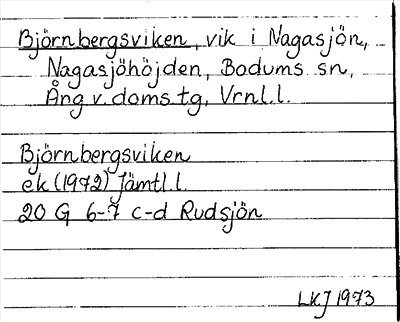 Björnbergsviken, vik i Nagasjön,
Nagasjöhöjden, Bodums sn,
Ång v. doms.tg, Vrnl.l.
Björnbergsviken
ek (1972) Jämtl.l.
20 G 6-7 c-d Rudsjön
LKJ 1973